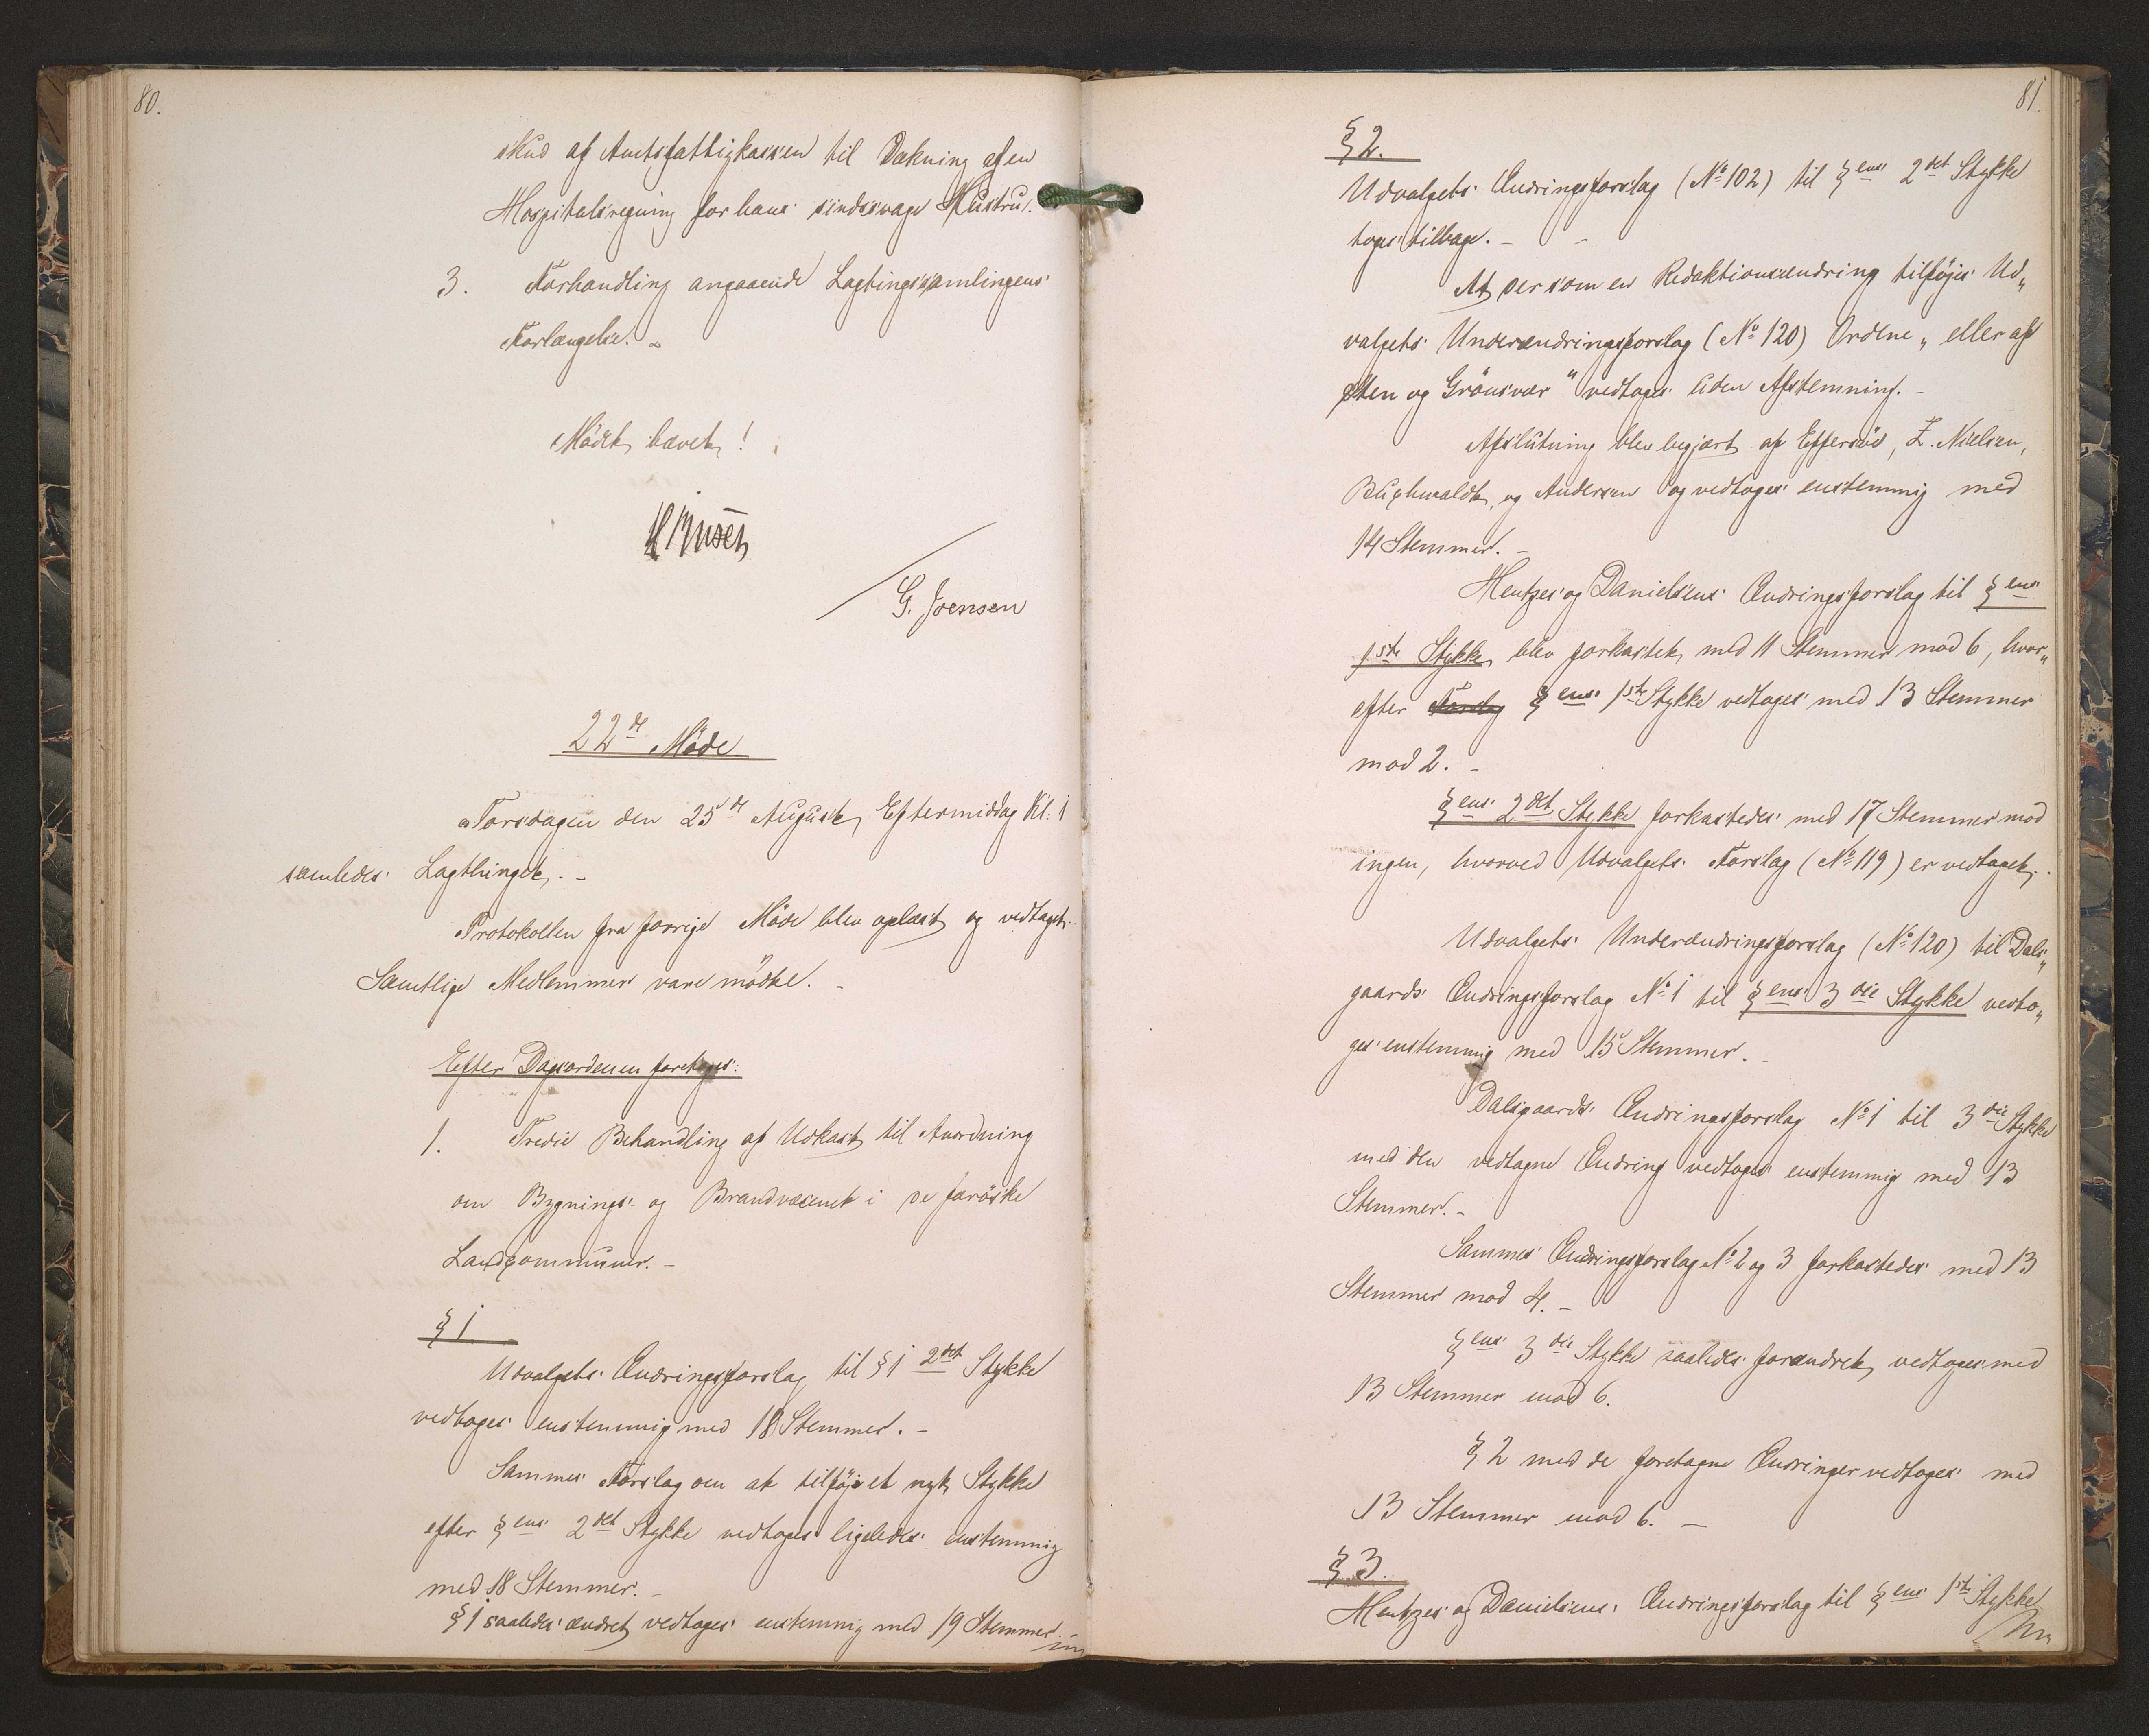 80.
skud af Amtsfattigkassen til Dækning af en
Hospitalsregning for hans sindssvage Hustru.
3. Forhandling angaaende Lagtingssamlingens
Forlængelse.
Mödet hævet!
G. Joensen
22de Möde
Torsdagen den 25de August, Eftermiddag Kl: 1
samledes Lagthinget. -
Protokollen fra forrige Möde blev oplæst og vedtaget.
Samtlige Medlemmer vare mödte. -
Efter Dagsordenen foretoges:
1. Tredie Behandling af Udkast til Anordning
om Bygnings- og Brandvæsenet i de færöiske
Landcommuner. -
§ 1.
Udvalgets Ændringsforslag til § 1 2det Stykke
vedtoges enstemmig med 18 Stemmer. -
Sammes Forslag om at tilföje et nyt Stykke
efter §ens 2det Stykke vedtoges ligeledes enstemmig
med 18 Stemmer. -
§ 1 saaledes ændret vedtoges enstemmig med 19 Stemmer.
81.
§ 2.
Udvalgets Ændringsforslag (No 102) til §ens 2det Stykke
toges tilbage. -
At der som en Redaktionsændring tilföjes Ud„
valgets Underændringsforslag (No 120) Ordene „eller af
Sten og Grönsvær" vedtoges uden Afstemning. -
Afslutning blev begjært af Effersöe, Z. Nielsen,
Buchwaldt, og Andersen og vedtoges enstemmig med
14 Stemmer. -
Hentzes og Danielsens Ændringsforslag til §ens
1ste Stykke blev forkastet med 11 Stemmer mod 6, hvor„
efter §ens 1ste Stykke vedtoges med 13 Stemmer
mod 2. -
§ens 2det Stykke forkastedes med 17 Stemmer mod
ingen, hvorved Udvalgets Forslag (No 119) er vedtaget.
Udvalgets Underændringsforslag (No 120) til Dals„
gaards Ændringsforslag No 1 til §ens 3die Stykke vedto„
ges enstemmig med 15 Stemmer. -
Dalsgaards Ændringsforslag No 1 til 3die Stykke
med den vedtagne Ændring vedtoges enstemmig med 13
Stemmer. -
Sammes Ændringsforslag No 2 og 3 forkastedes med 13
Stemmer mod 4. -
§ens 3die Stykke saaledes forandret vedtoges med
13 Stemmer mod 6.
§ 2 med de foretagne Ændringer vedtoges med
13 Stemmer mod 6. -
§ 3.
Hentzes og Danielsens Ændringsforslag til §ens 1ste Stykke